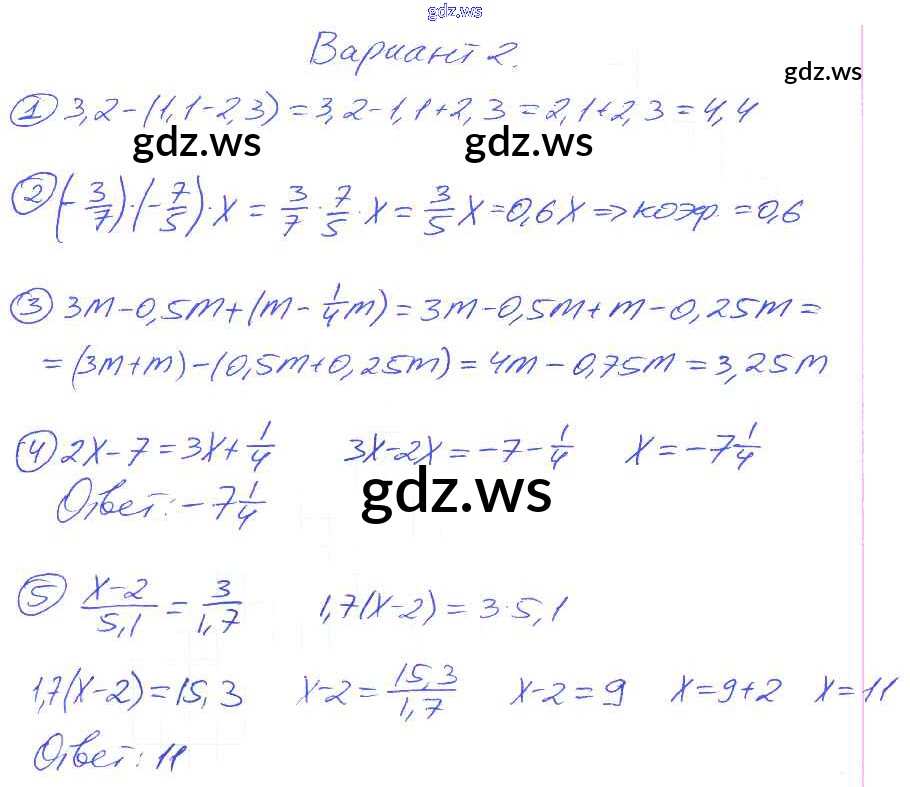 gdz.ws
Вариант 2.
gdz.ws
① 3,2-(1,1-2,3)=3,2-1,1+2,3=2,1+2,3=4,4
gdz.ws gdz.ws
② (-3/7)·(-7/5)·x = 3/7·7/5·x = 3/5x=0,6x ⇒ коэф. =0,6
③ 3m-0,5m+(m-1/4m)=3m-0,5m+m-0,25m=
=(3m+m)-(0,5m+0,25m)=4m-0,75m=3,25m
④ 2x-7=3x+1/4 3x-2x=-7-1/4 x=-7 1/4
Ответ: -7 1/4
gdz.ws
⑤ (x-2)/5,1 = 3/1,7 1,7(x-2)=3·5,1
1,7(x-2)=15,3 x-2=15,3/1,7 x-2=9 x=9+2 x=11
Ответ: 11